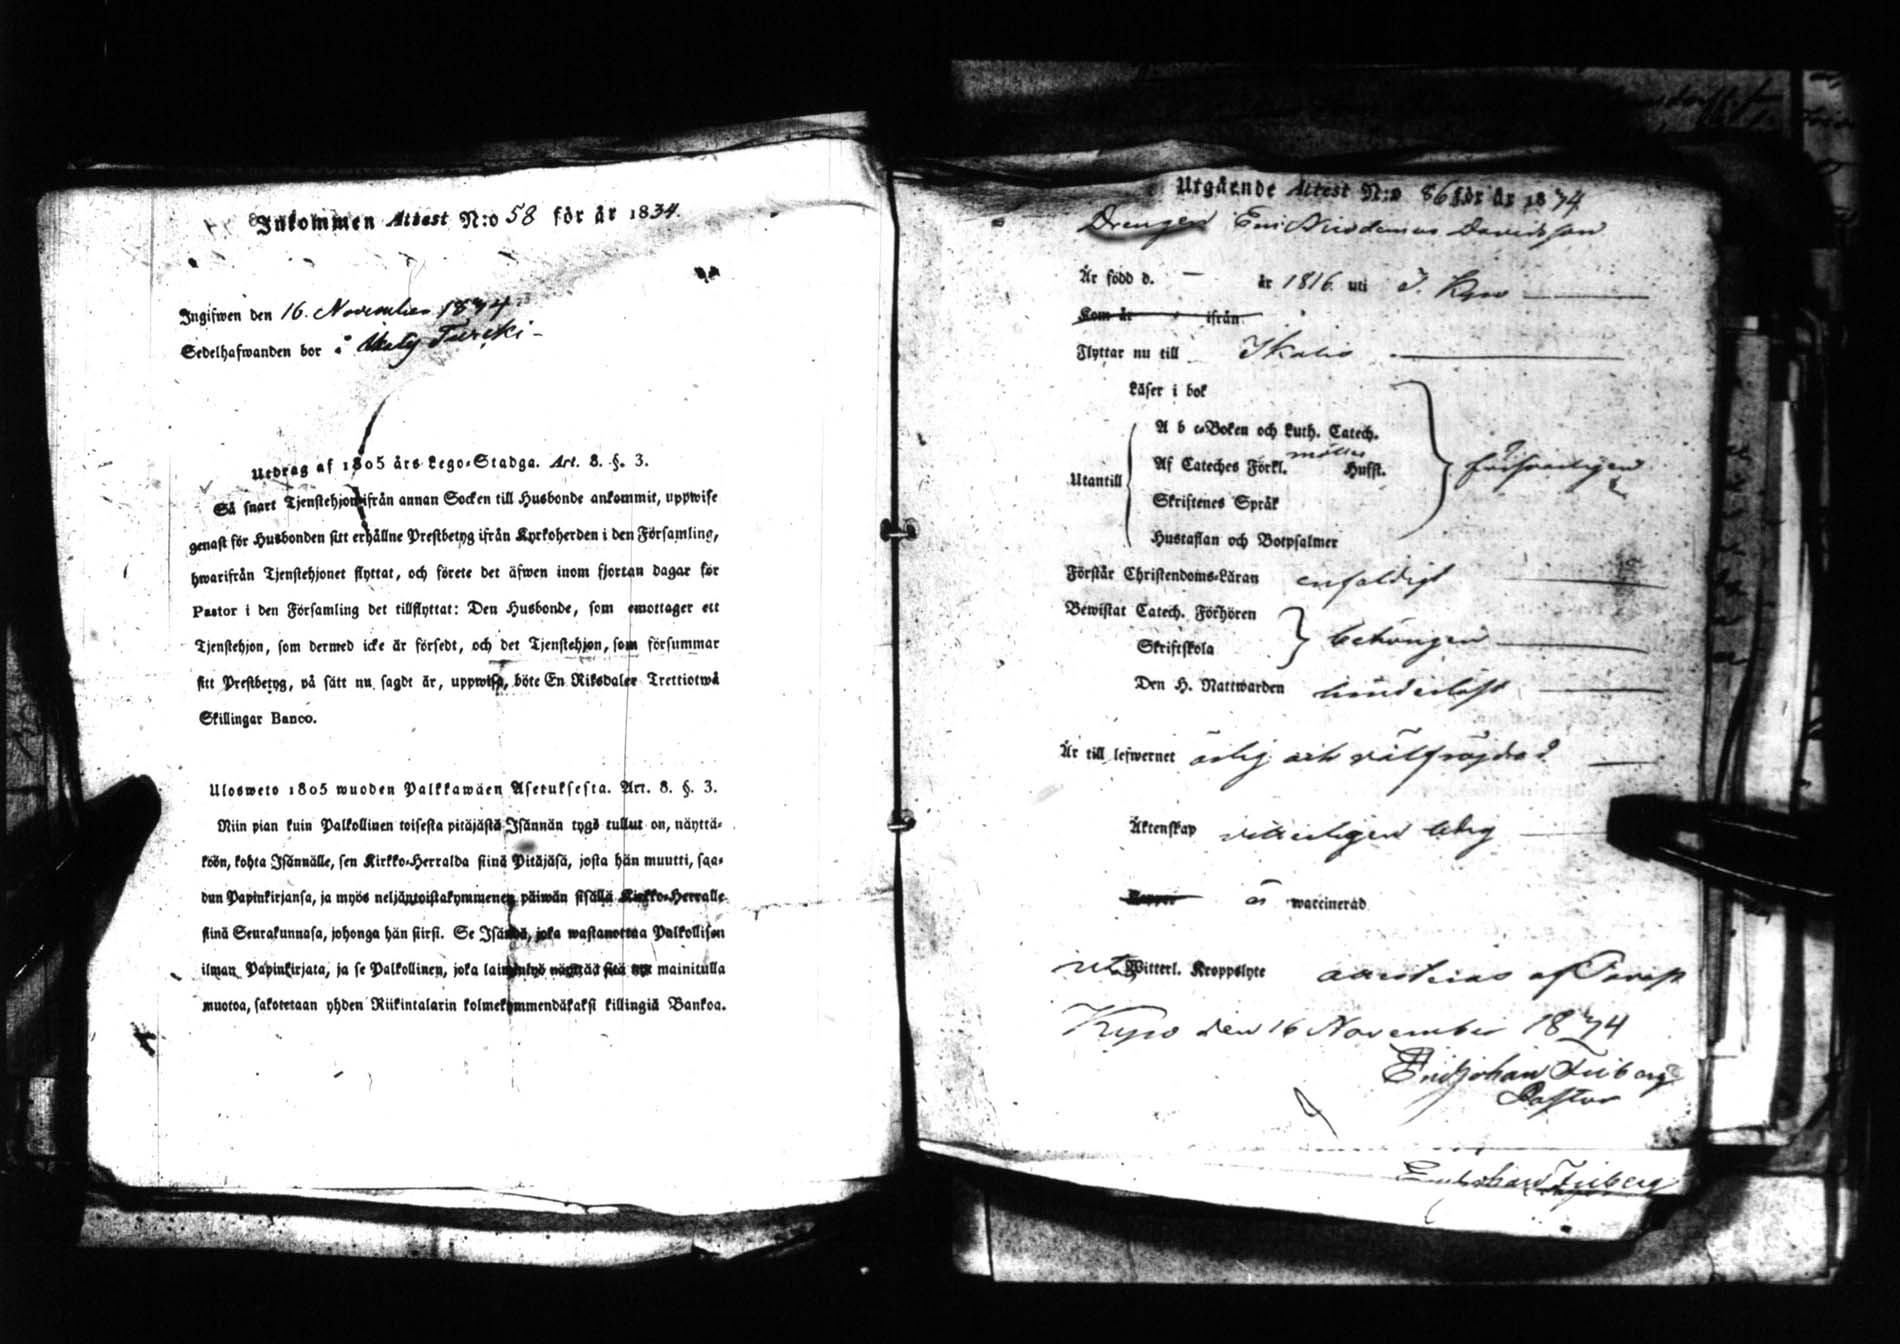 Inkommen Attest N:o 58 för år 1834.
Ingifwen den 16. November 1834
Sedelhafwanden bor i
Utdrag af 1805 års Lego-Stadga. Art. 8. §. 3.
Så snart Tjenstehjon ifrån annan Socken till Husbonde ankommit, uppwise
genast för Husbonden sitt erhållne Prestbetyg ifrån Kyrkoherden i den Församling,
hwarifrån Tjenstehjonet flyttat, och förete det äfwen inom fjortan dagar för
Pastor i den Församling det tillflyttat: Den Husbonde, som emottager ett
Tjenstehjon, som dermed icke är försedt, och det Tjenstehjon, som försummar
sitt Prestbetyg, på sätt nu sagdt är, uppwisa, böte En Riksdaler Trettiotwå
Skillingar Banco.
Ulosweto 1805 wuoden Palkkawäen Asetuksesta. Art. 8. §. 3.
Niin pian kuin Palkollinen toisesta pitäjästä Isännän tygö tullut on, näyttä-
köön, kohta Isännälle, sen Kirkko-Herralda siinä Pitäjäsä, josta hän muutti, saa-
dun Papinkirjansa, ja myös neljäntoistakymmenen päiwän sisällä Kirkko-Herralle
siinä Seurakunnasa, johonga hän siirsi. Se Isändä, joka wastanottaa Palkollisen
ilman Papinkirjata, ja se Palkollinen, joka laiminlyö näyttää sitä nyt mainitulla
muotoa, sakotetaan yhden Riikintalarin kolmekymmendäkaksi killingiä Bankoa.
Utgående Attest N:o 86 för år 1834
Drengen Eric Nicodemus Davidsson
Är född d. — år 1816 uti I. Kyro
Kom år ifrån
Flyttar nu till Ikalis
Läser i bok
A b c-Boken och Luth. Catech.
Af Cateches Förkl. Husst.
Utantill
Skriftenes Språk försvarligen
Hustaflan och Botpsalmer
Förstår Christendoms-Läran enfaldigt
Bewistat Catech. Förhören
Skriftskola behörigen
Den H. Nattwarden
Är till lefwernet ärlig och
Äktenskap vitterligen ledig
är waccinerad
utan Witterl. Kroppslyte attesteras af
Kyro den 16 November 1834
Eric Johan Friberg
Pastor
Friberg